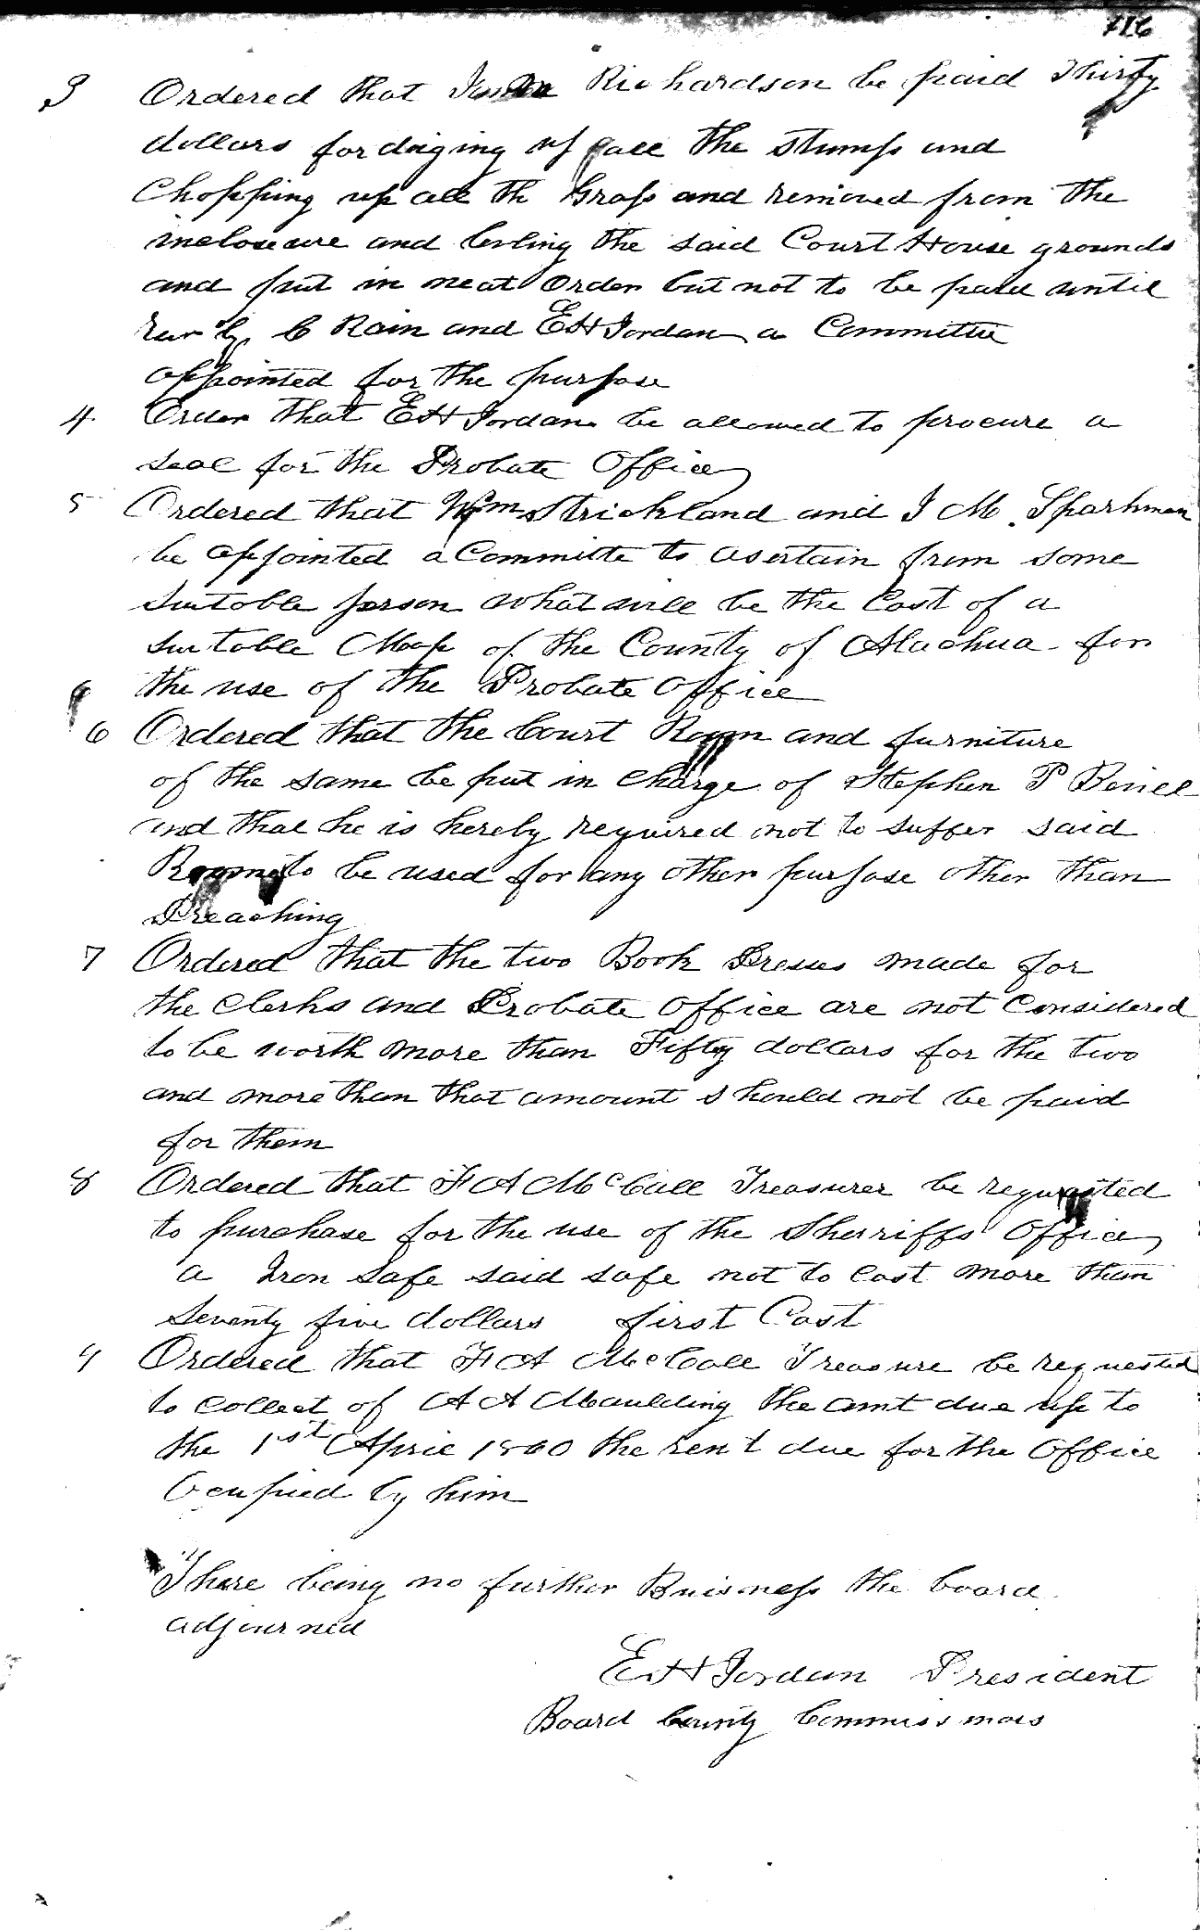 716
3 Ordered that James Richardson be paid Thirty
dollars for diging up all the stumps and
Chopping up all th Grass and removed from the
inclosure and levling the said Court House grounds
and put in neat Order but not to be paid until
by C Rain and E H Jordan a Committee
appointed for the purpose
4 Order that E H Jordan be allowed to procure a
seal for the Probate Office
5 Ordered that Wm Strickland and J M Sparkman
be appointed a Committe to asertain from some
sutable person what will be the Cost of a
sutable Map of the County of Alachua for
the use of the Probate Office
6 Ordered that the Court Room and furniture
of the same be put in charge of Stephen P
and that he is hereby required not to suffer said
Room to be used for any other purpose other than
Preaching
7 Ordered that the two Book Presses made for
the Clerks and Probate office are not Considered
to be worth more than Fifty dollars for the two
and more than that amount should not be paid
for them
8 Ordered that F A McCall Treasurer be requested
to purchase for the use of the Sherriffs Office
a Iron Safe said safe not to cost more than
Seventy five dollars first Cost
9 Ordered that F A McCall Treasure be requested
to collect of A A Maulding the amt due up to
the 1st April 1860 the rent due for the Office
Ocupied by him
There being no further Buisness the board
adjourned
E H Jordan President
Board County Commissinors